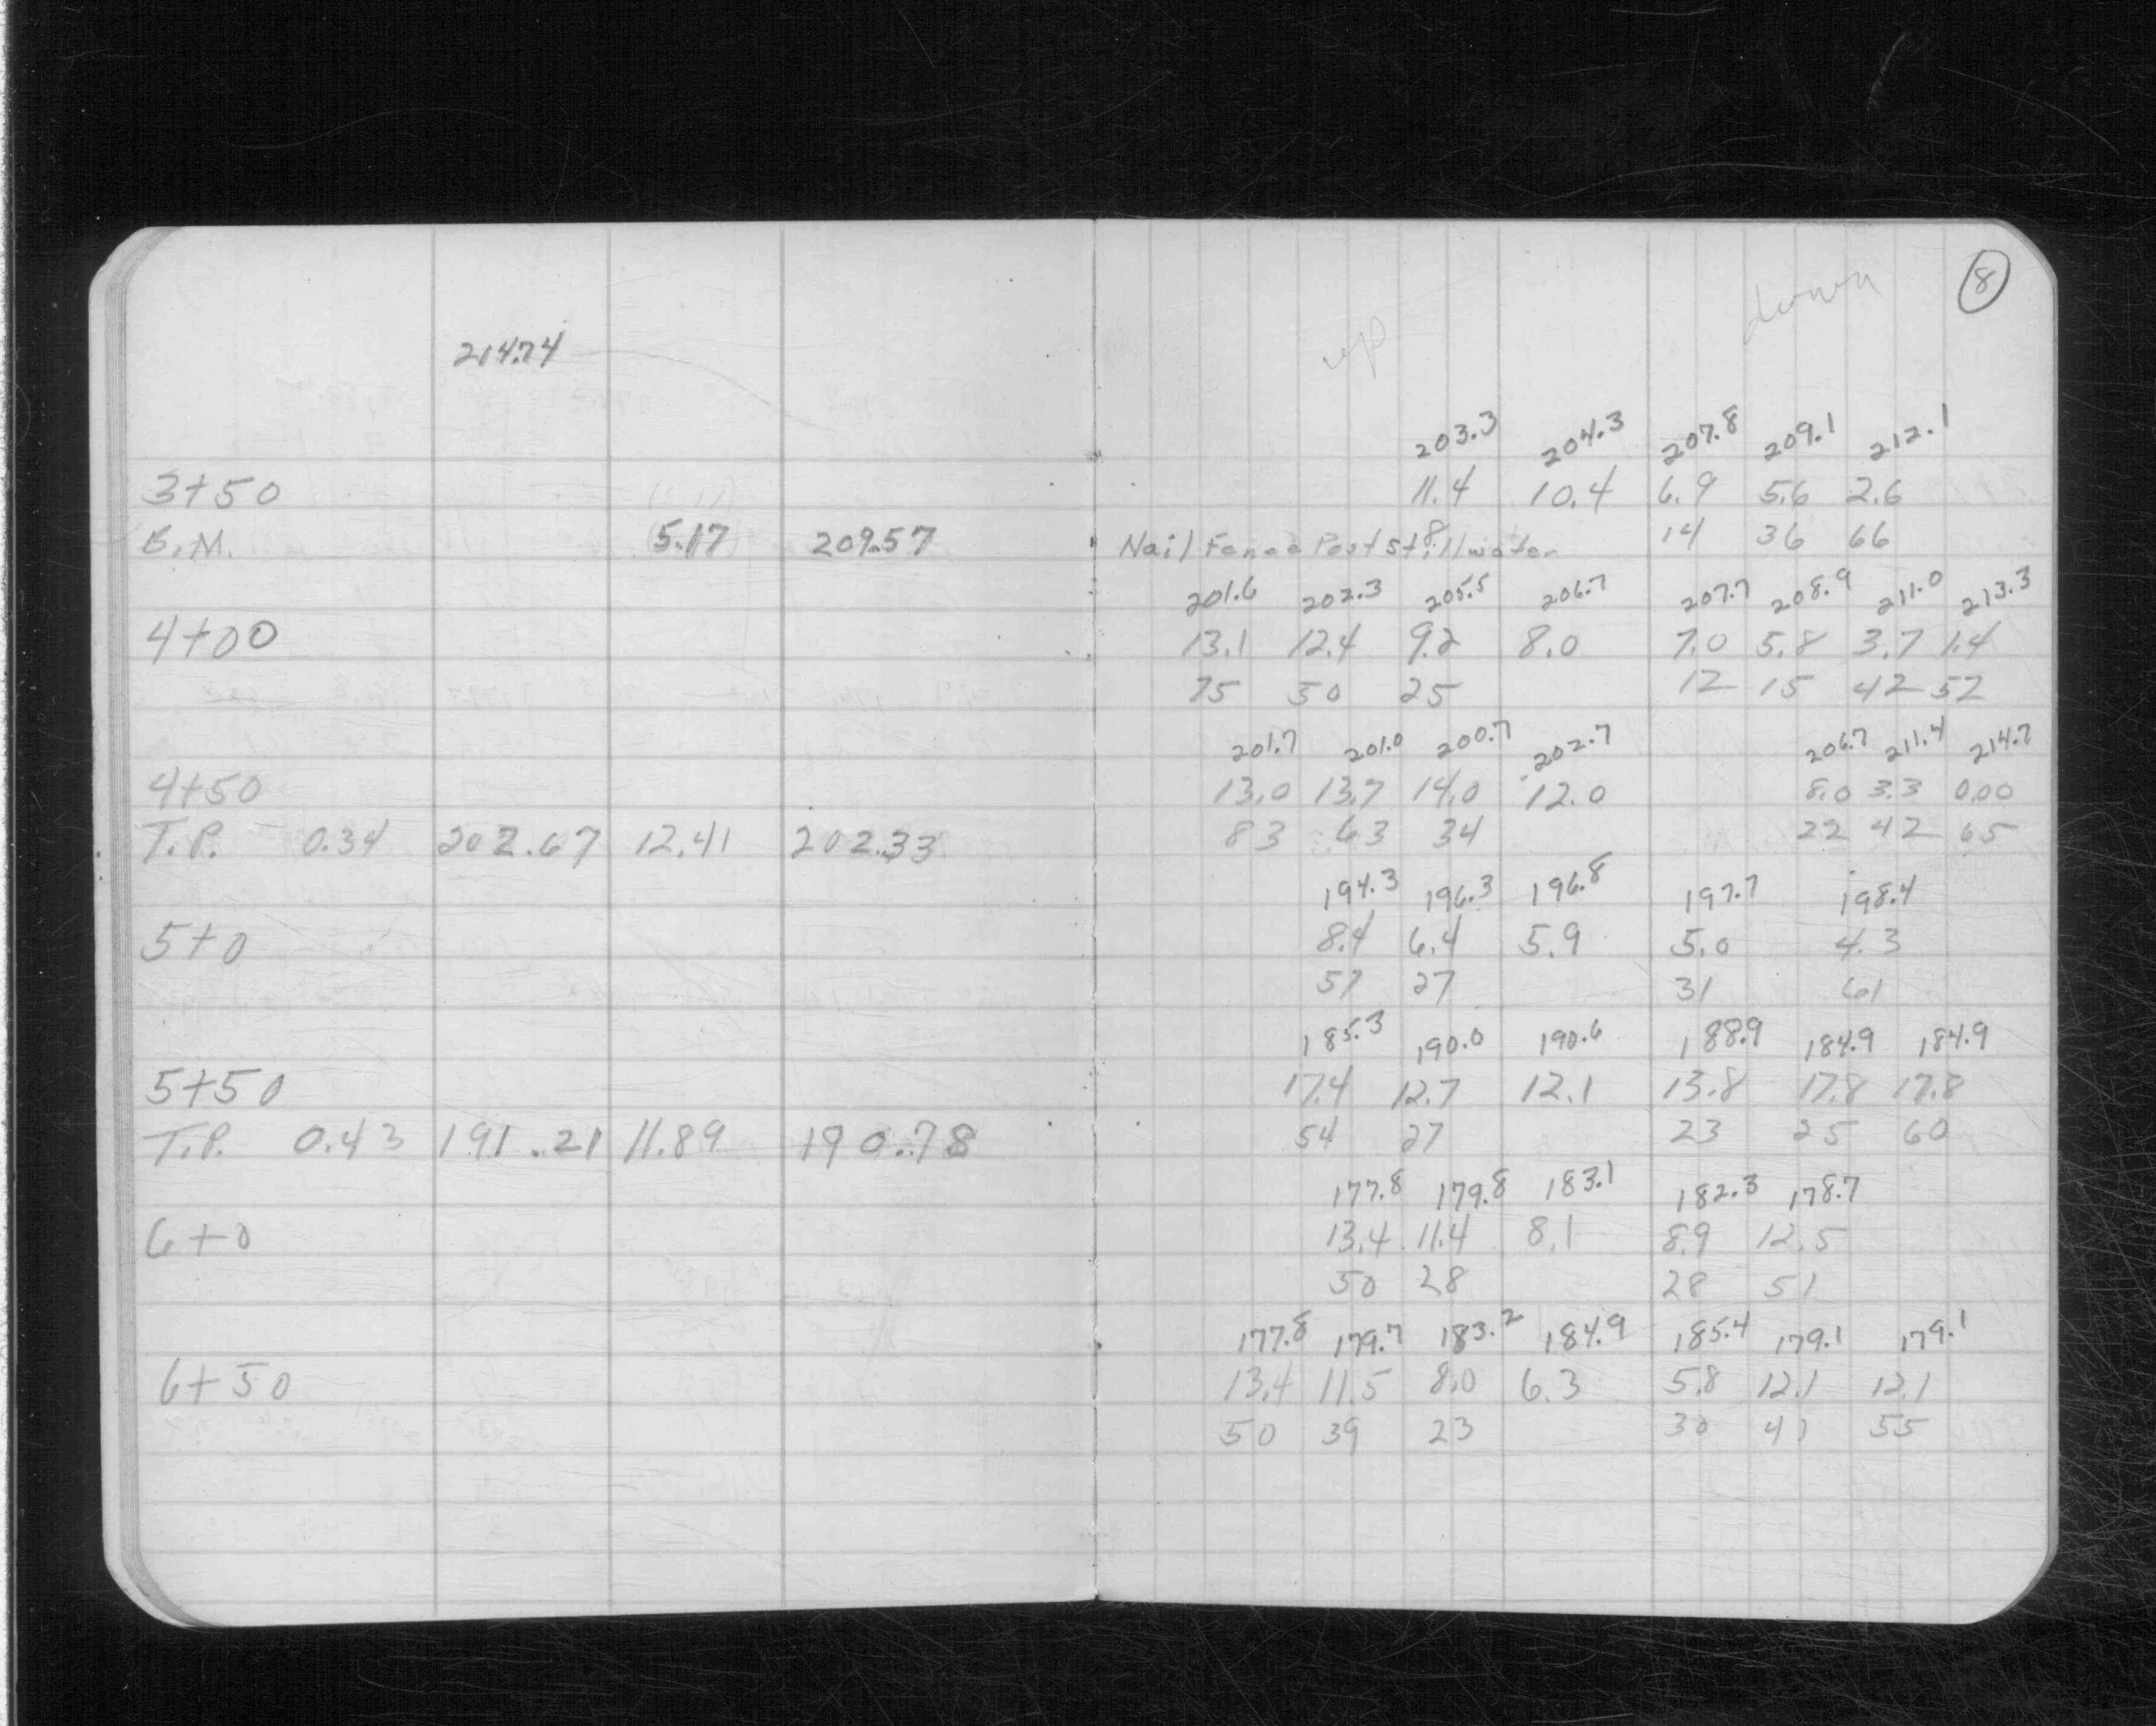 8
up down
214.74
203.3 204.3 207.8 209.1 212.1
3+50 11.4 10.4 6.9 5.6 2.6
8 14 36 66
B.M. (5.17) 209.57 Nail Fence Post Stillwater
201.6 202.3 205.5 206.7 207.7 208.9 211.0 213.3
4+00 13.1 12.4 9.2 8.0 7.0 5.8 3.7 1.4
75 50 25 12 15 42 52
201.7 201.0 200.7 202.7 206.7 211.4 214.7
4+50 13.0 13.7 14.0 12.0 8.0 3.3 0.00
T.P. 0.34 202.67 12.41 202.33 83 63 34 22 42 65
194.3 196.3 196.8 197.7 198.4
5+0 8.4 6.4 5.9 5.0 4.3
57 27 31 61
185.3 190.0 190.6 188.9 184.9 184.9
5+50 17.4 12.7 12.1 13.8 17.8 17.8
T.P. 0.43 191.21 11.89 190.78 54 27 23 25 60
177.8 179.8 183.1 182.3 178.7
6+0 13.4 11.4 8.1 8.9 12.5
50 28 28 51
177.8 179.7 183.2 184.9 185.4 179.1 179.1
6+50 13.4 11.5 8.0 6.3 5.8 12.1 12.1
50 39 23 30 41 55